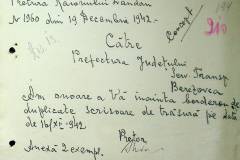 Pretura Raionului Landau
No 1960 din 19 Decembrie 1942.-
Concept
210
Către
Prefectura Județului
Serv. Transp
Berezovca
Am onoare a Vă înainta borderou de
duplicate scrisoare de trăsură pe data
de 16/XII-942
Pretor
Anexă 2 exempl.